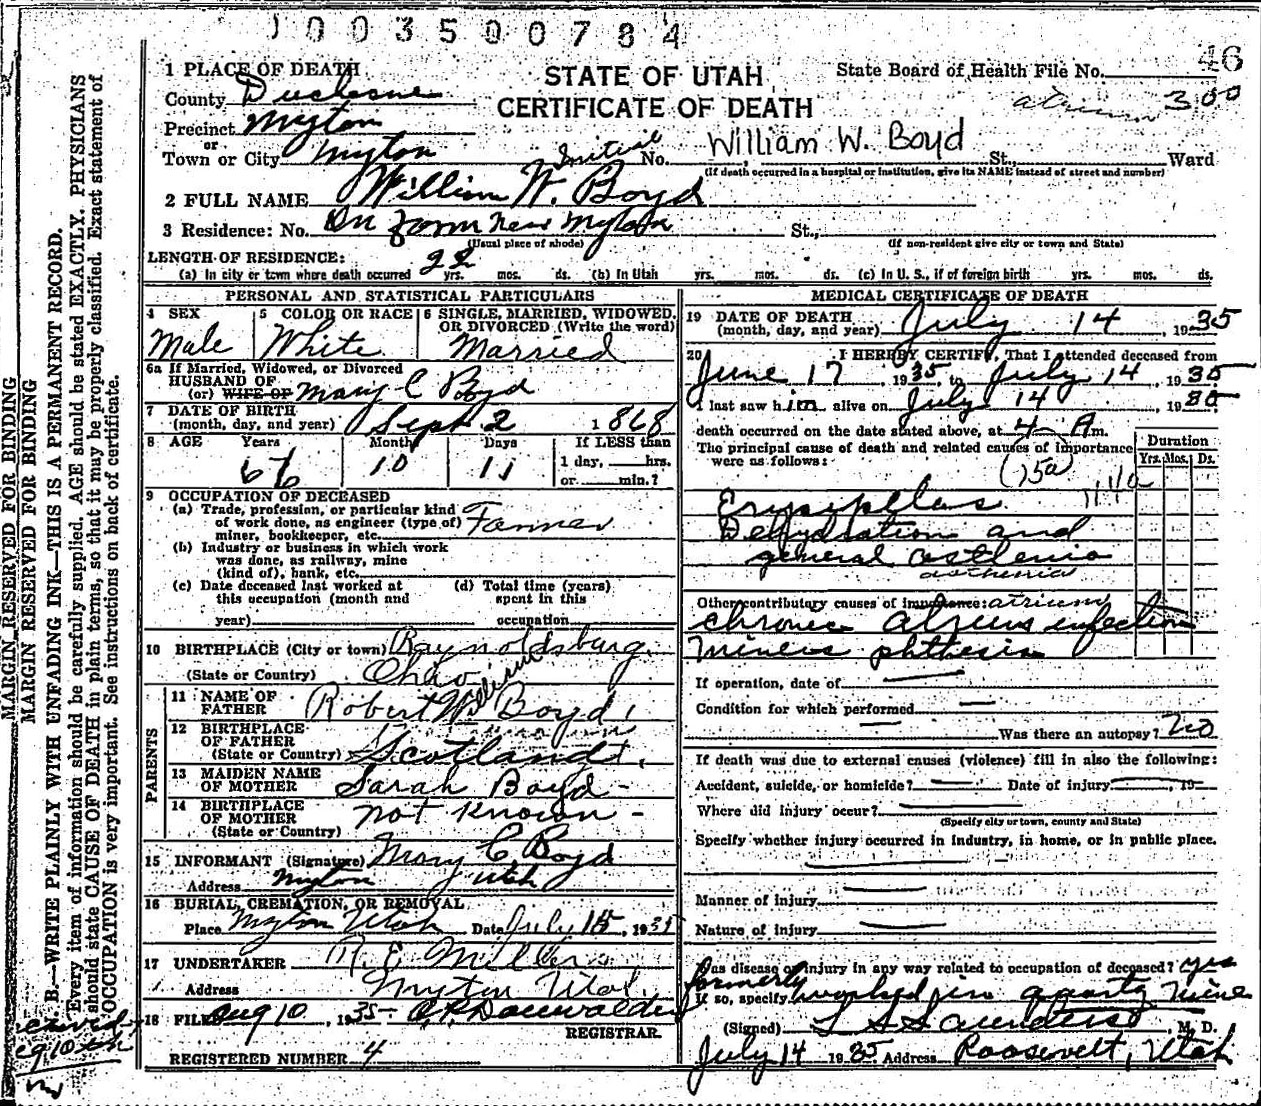 1003500784
46
1 PLACE OF DEATH
STATE OF UTAH
State Board of Health File No.
County Duchesne
CERTIFICATE OF DEATH
atrium 300
Precinct Myton
or
Town or City Myton Initial No. William W. Boyd St., Ward
(If death occurred in a hospital or institution, give its NAME instead of street and number)
2 FULL NAME William W. Boyd
3 Residence: No. On farm near Myton St.,
(Usual place of abode) (If non-resident give city or town and State)
LENGTH OF RESIDENCE:
(a) In city or town where death occurred 22 yrs. mos. ds. (b) In Utah yrs. mos. ds. (c) In U. S., if of foreign birth yrs. mos. ds.
PERSONAL AND STATISTICAL PARTICULARS
4 SEX 5 COLOR OR RACE 6 SINGLE, MARRIED, WIDOWED, OR DIVORCED (Write the word)
Male White Married
6a If Married, Widowed, or Divorced
HUSBAND OF
(or) WIFE OF Mary C Boyd
7 DATE OF BIRTH
(month, day, and year) Sept 2 1868
8 AGE Years Months Days If LESS than
66 10 11 1 day, hrs.
or min.?
9 OCCUPATION OF DECEASED
(a) Trade, profession, or particular kind
of work done, as engineer (type of)
miner, bookkeeper, etc. Farmer
(b) Industry or business in which work
was done, as railway, mine
(kind of), bank, etc.
(c) Date deceased last worked at (d) Total time (years)
this occupation (month and spent in this
year) occupation
10 BIRTHPLACE (City or town) Raynoldsburg
(State or Country) Ohio
PARENTS
11 NAME OF
FATHER Robert William Boyd
12 BIRTHPLACE
OF FATHER
(State or Country) Scotland
13 MAIDEN NAME
OF MOTHER Sarah Boyd -
14 BIRTHPLACE
OF MOTHER not known -
(State or Country)
15 INFORMANT (Signature) Mary C Boyd
Address Myton Utah
16 BURIAL, CREMATION, OR REMOVAL
Place Myton Utah Date July 15, 1935
17 UNDERTAKER R E Miller
Address Myton Utah.
18 FILED Aug 10, 1935
REGISTRAR.
REGISTERED NUMBER 4
MEDICAL CERTIFICATE OF DEATH
19 DATE OF DEATH
(month, day, and year) July 14, 1935
20 I HEREBY CERTIFY, That I attended deceased from
June 17, 1935, to July 14, 1935
I last saw him alive on July 14 1935
death occurred on the date stated above, at 4 A m.
The principal cause of death and related causes of importance
were as follows:
Duration
Yrs. Mos. Ds.
(15a)
Erysipelas
Dehydration and
general asthenia
asthenia
Other contributory causes of importance: atrium
chronic atrium infection
miners phthisis
If operation, date of
Condition for which performed
Was there an autopsy? No
If death was due to external causes (violence) fill in also the following:
Accident, suicide, or homicide? Date of injury , 19
Where did injury occur?
(Specify city or town, county and State)
Specify whether injury occurred in industry, in home, or in public place.
Manner of injury
Nature of injury
Was disease or injury in any way related to occupation of deceased? yes
If so, specify formerly worked in quartz mine
(Signed) L S Saunders, M. D.
July 14 1935 Address Roosevelt, Utah
MARGIN RESERVED FOR BINDING
MARGIN RESERVED FOR BINDING
B.—WRITE PLAINLY WITH UNFADING INK—THIS IS A PERMANENT RECORD.
Every item of information should be carefully supplied. AGE should be stated EXACTLY. PHYSICIANS
should state CAUSE OF DEATH in plain terms, so that it may be properly classified. Exact statement of
OCCUPATION is very important. See instructions on back of certificate.